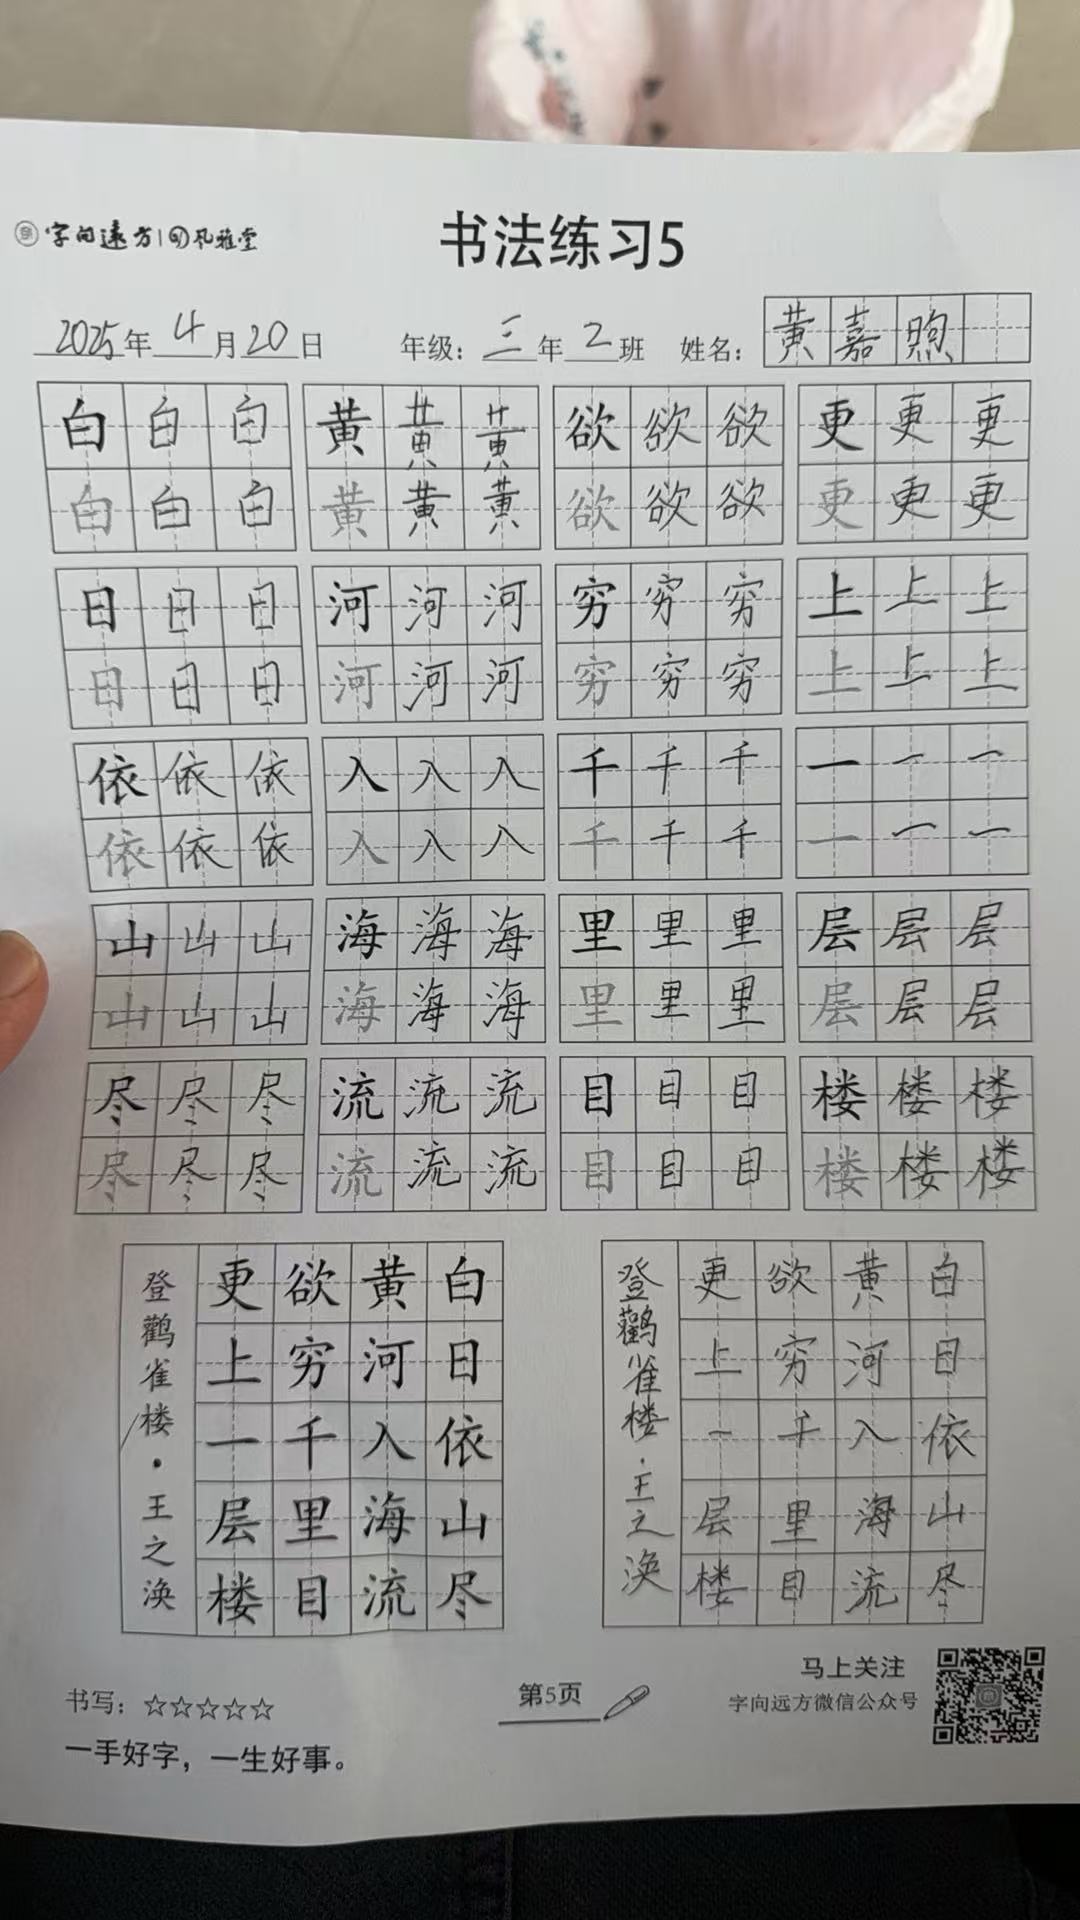 字向远方 风雅堂
书法练习5
2025年4月20日 年级：三年2班 姓名：黄嘉煦
白白白 黄黄黄 欲欲欲 更更更
白白白 黄黄黄 欲欲欲 更更更
日日日 河河河 穷穷穷 上上上
日日日 河河河 穷穷穷 上上上
依依依 入入入 千千千 一一一
依依依 入入入 千千千 一一一
山山山 海海海 里里里 层层层
山山山 海海海 里里里 层层层
尽尽尽 流流流 目目目 楼楼楼
尽尽尽 流流流 目目目 楼楼楼
白日依山尽
黄河入海流
欲穷千里目
更上一层楼
登鹳雀楼·王之涣
白日依山尽
黄河入海流
欲穷千里目
更上一层楼
登鹳雀楼·王之涣
书写：☆☆☆☆☆
一手好字，一生好事。
第5页
马上关注
字向远方微信公众号